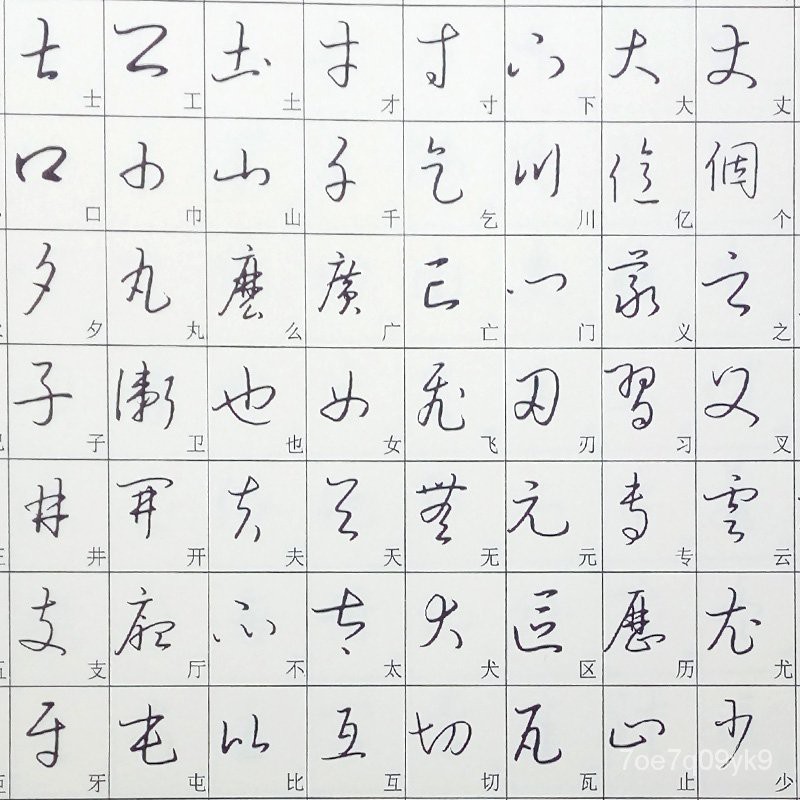 士 工 土 才 寸 下 大 丈
口 巾 山 千 乞 川 亿 个
夕 丸 么 广 亡 门 义 之
子 卫 也 女 飞 刃 习 叉
井 开 夫 天 无 元 专 云
支 厅 不 太 犬 区 历 尤
牙 屯 比 互 切 瓦 止 少
7oe7d09yk9